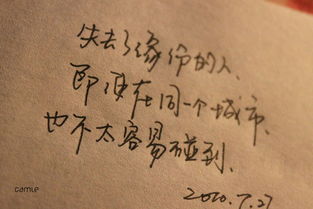 失去了缘份的人、
即使在同一个城市、
也不太容易碰到、
2010.7.27
camie